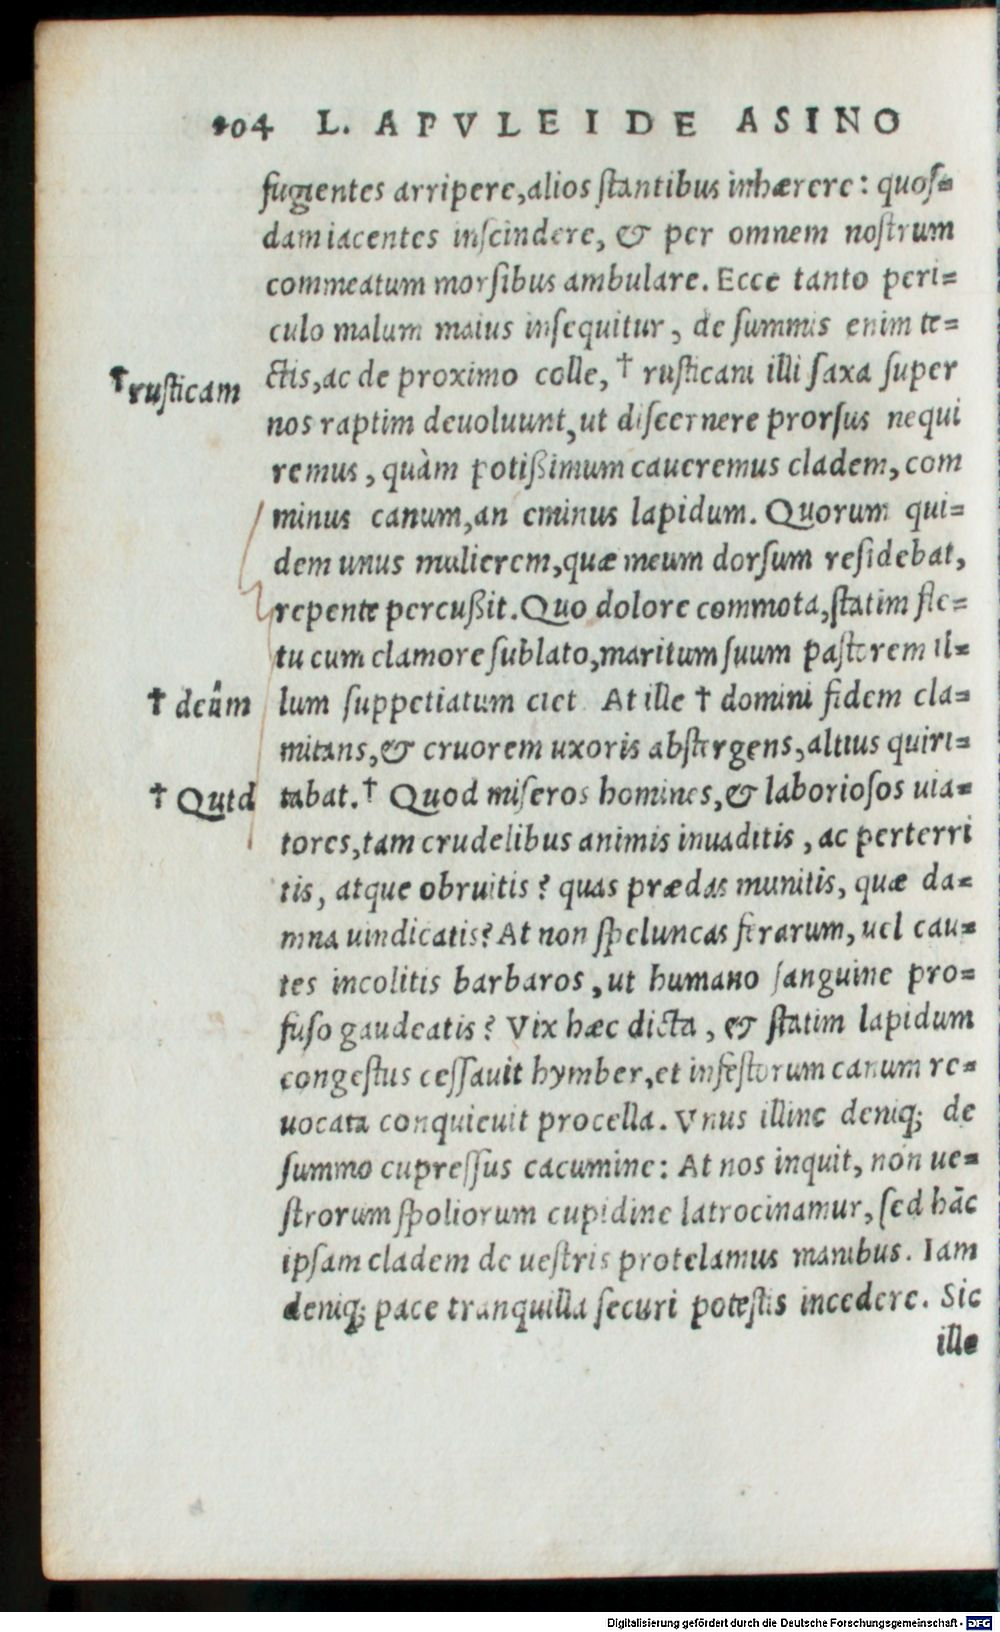 204 L. APVLEI DE ASINO
fugientes arripere, alios stantibus inhærere: quos=
dam iacentes inscindere, & per omnem nostrum
commeatum morsibus ambulare. Ecce tanto peri=
culo malum maius insequitur, de summis enim te=
†rusticam
ctis, ac de proximo colle, † rusticani illi saxa super
nos raptim deuoluunt, ut discernere prorsus nequi
remus, quàm potißimum caueremus cladem, com
minus canum, an eminus lapidum. Quorum qui=
dem unus mulierem, quæ meum dorsum residebat,
repente percußit. Quo dolore commota, statim fle=
tu cum clamore sublato, maritum suum pastorem il=
† deûm
lum suppetiatum ciet At ille † domini fidem cla=
mitans, & cruorem uxoris abstergens, altius quiri=
† Quid
tabat. † Quod miseros homines, & laboriosos uia=
tores, tam crudelibus animis inuaditis, ac perterri
tis, atque obruitis? quas prædas munitis, quæ da=
mna uindicatis? At non speluncas ferarum, uel cau=
tes incolitis barbaros, ut humano sanguine pro=
fuso gaudeatis? Vix hæc dicta, & statim lapidum
congestus cessauit hymber, et infestorum canum re=
uocata conquieuit procella. Vnus illinc deniq; de
summo cupressus cacumine: At nos inquit, non ue=
strorum spoliorum cupidine latrocinamur, sed hāc
ipsam cladem de uestris protelamus manibus. Iam
deniq; pace tranquilla securi potestis incedere. Sic
ille
Digitalisierung gefördert durch die Deutsche Forschungsgemeinschaft - DFG